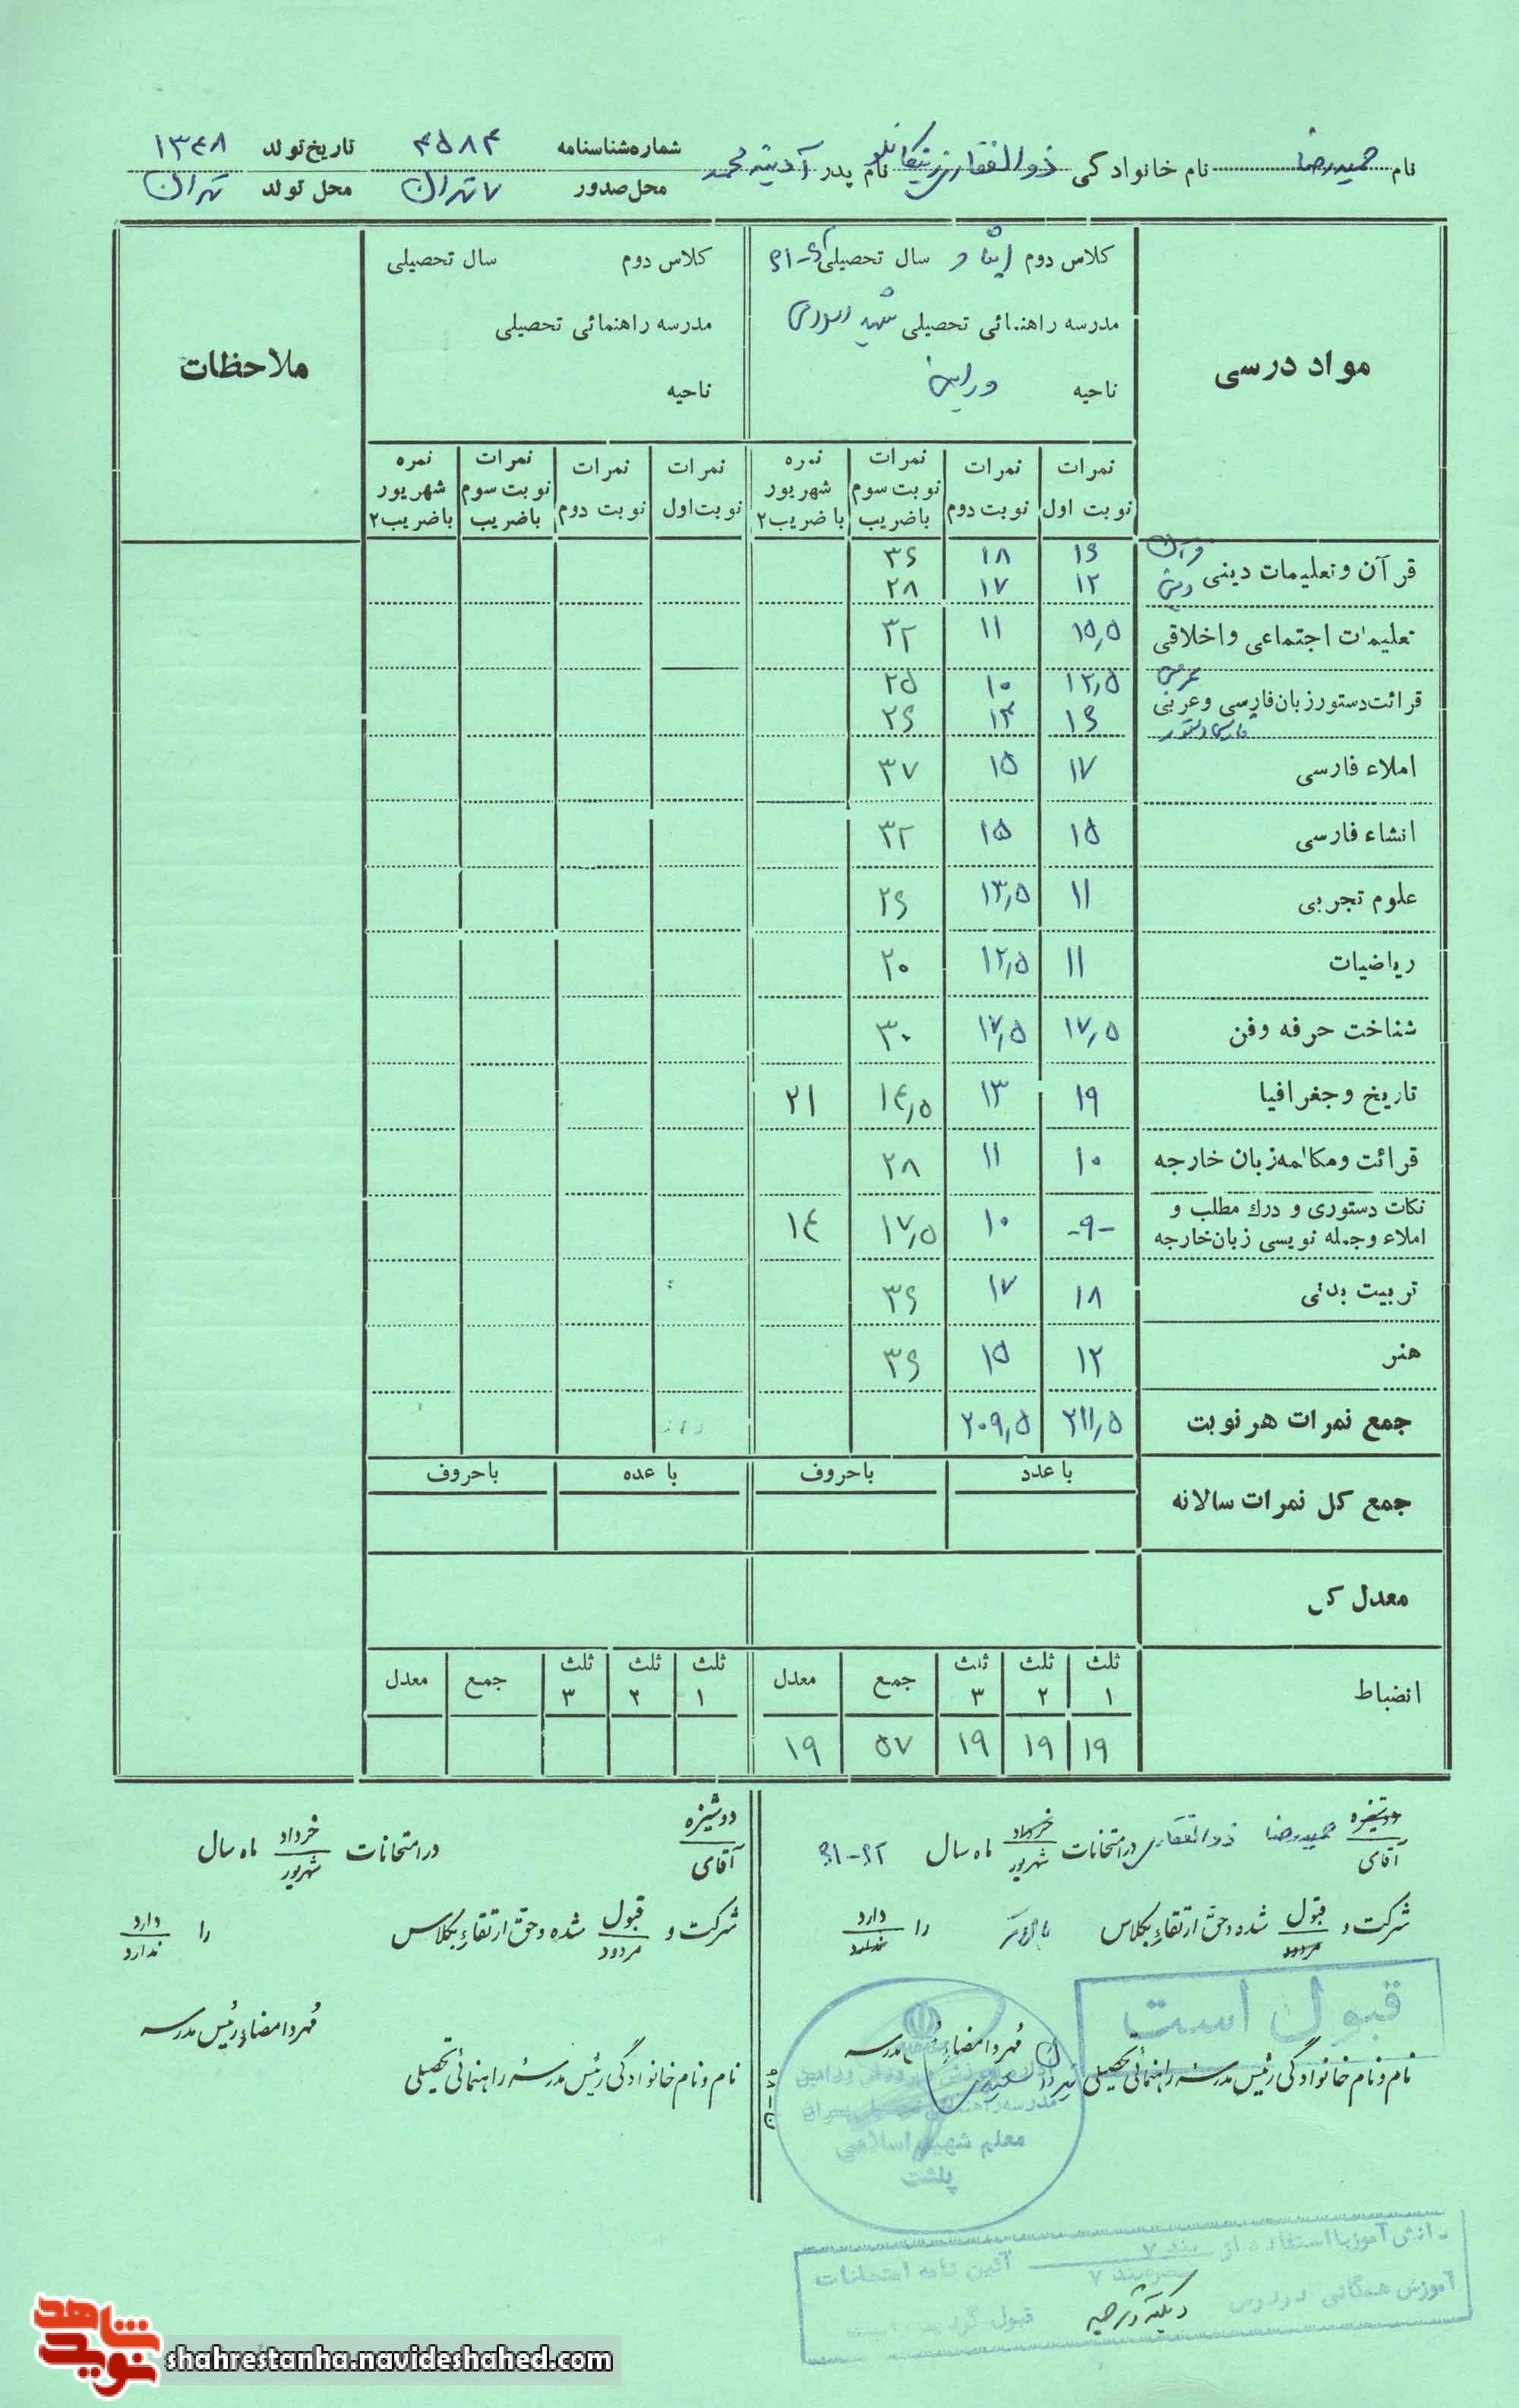 نام حمیدرضا نام خانوادگی ذوالفقار نام پدر آدینه محمد شماره شناسنامه ۴۵۸۴ تاریخ تولد ۱۳۴۸
محل صدور ۷ تهران محل تولد تهران
مواد درسی
کلاس دوم ایثار سال تحصیلی ۶۲-۶۱
مدرسه راهنمائی تحصیلی شهید اسلامی
ناحیه ورامین
کلاس دوم سال تحصیلی
مدرسه راهنمائی تحصیلی
ناحیه
ملاحظات
نمرات نوبت اول نمرات نوبت دوم نمرات نوبت سوم باضریب نمره شهریور باضریب ۲ نمرات نوبت اول نمرات نوبت دوم نمرات نوبت سوم باضریب نمره شهریور باضریب ۲
قرآن و تعلیمات دینی قرآن ۱۶ ۱۸ ۳۶
دینی ۱۲ ۱۷ ۲۸
تعلیمات اجتماعی و اخلاقی ۱۵,۵ ۱۱ ۳۲
قرائت دستور زبان فارسی و عربی عربی ۱۳,۵ ۱۰ ۲۵
فارسی دستور ۱۶ ۱۴ ۲۶
املاء فارسی ۱۷ ۱۵ ۳۷
انشاء فارسی ۱۵ ۱۵ ۳۲
علوم تجربی ۱۱ ۱۳,۵ ۲۶
ریاضیات ۱۱ ۱۲,۵ ۲۰
شناخت حرفه وفن ۱۷,۵ ۱۷,۵ ۳۰
تاریخ و جغرافیا ۱۹ ۱۳ ۱۴,۵ ۲۱
قرائت ومکالمه زبان خارجه ۱۰ ۱۱ ۲۸
نکات دستوری و درك مطلب و
املاء وجمله نویسی زبان خارجه -۹- ۱۰ ۱۷,۵ ۱۴
تربیت بدنی ۱۸ ۱۷ ۳۶
هنر ۱۲ ۱۵ ۳۶
جمع نمرات هر نوبت ۲۱۱,۵ ۲۰۹,۵
جمع کل نمرات سالانه باعدد باحروف باعده باحروف
معدل کل
انضباط ثلث ۱ ثلث ۲ ثلث ۳ جمع معدل ثلث ۱ ثلث ۲ ثلث ۳ جمع معدل
۱۹ ۱۹ ۱۹ ۵۷ ۱۹
دوشیزه
آقای حمیدرضا ذوالفقاری در امتحانات خرداد شهریور ماه سال ۶۲-۶۱
شرکت و قبول مردود شده و حق ارتقاء بکلاس بالاتر را دارد ندارد
قبول است
مهر و امضاء رئیس مدرسه
نام و نام خانوادگی رئیس مدرسه راهنمائی تحصیلی
دوشیزه
آقای در امتحانات خرداد شهریور ماه سال
شرکت و قبول مردود شده و حق ارتقاء بکلاس را دارد ندارد
مهر و امضاء رئیس مدرسه
نام و نام خانوادگی رئیس مدرسه راهنمائی تحصیلی
مدرسه راهنمائی تحصیلی پسران
معلم شهید اسلامی
پلشت
دانش آموز با استفاده از بند ۷ تبصره بند ۷ آئین نامه امتحانات
آموزش همگانی در درس دیکته و ترجمه قبول گردیده است
نوید شاهد
shahrestanha.navideshahed.com